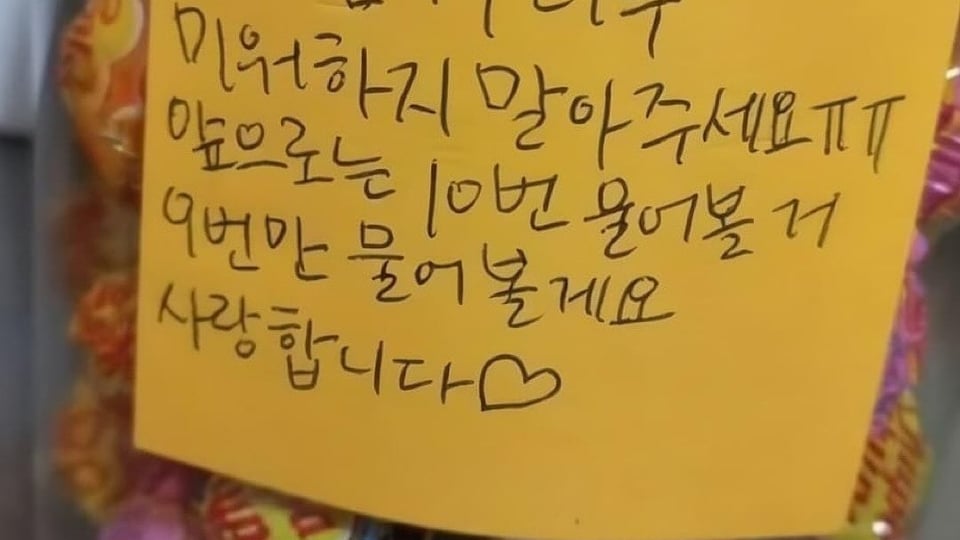 미워하지 말아주세요ㅠㅠ
앞으로는 10번 물어볼 거
9번만 물어볼게요
사랑합니다♡